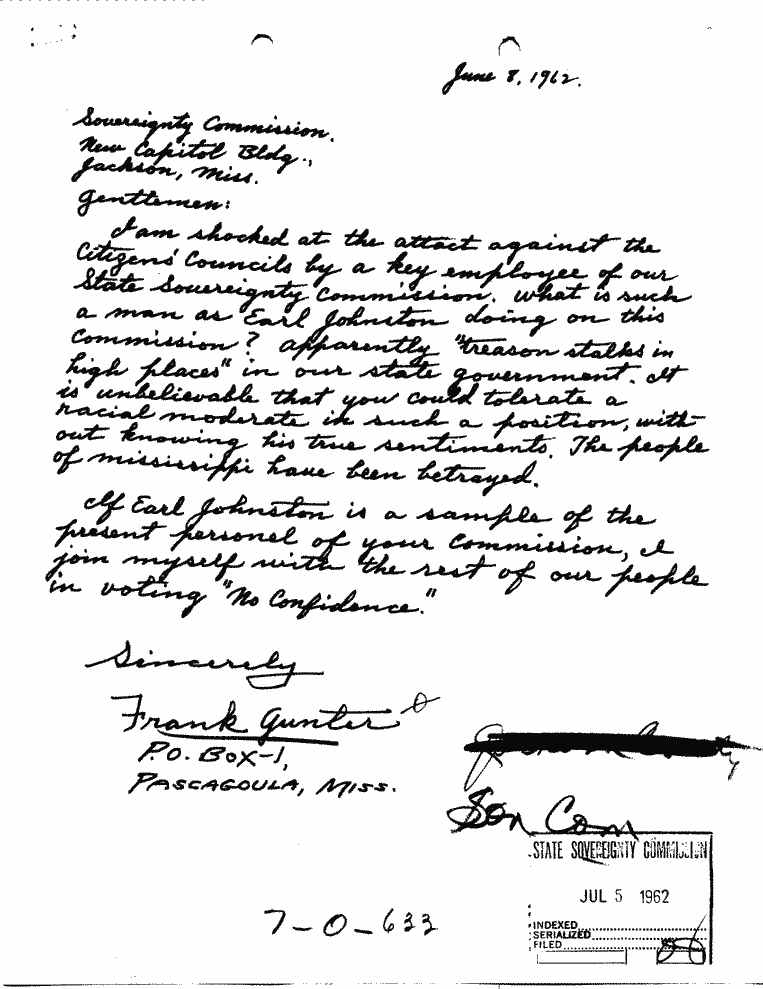 June 8, 1962.
Sovereignty Commission.
New Capitol Bldg.,
Jackson, Miss.
Gentlemen:
I am shocked at the attact against the
Citizens' Councils by a key employee of our
State Sovereignty Commission. What is such
a man as Earl Johnston doing on this
Commission? Apparently "treason stalks in
high places" in our state government. It
is unbelievable that you could tolerate a
racial moderate in such a position, with-
out knowing his true sentiments. The people
of Mississippi have been betrayed.
If Earl Johnston is a sample of the
present personel of your Commission, I
join myself with the rest of our people
in voting "No Confidence."
Sincerely
Frank Gunter
P.O. Box-1,
Pascagoula, Miss.
Sov Com
STATE SOVEREIGNTY COMMISSION
JUL 5 1962
INDEXED
SERIALIZED
FILED
7-0-633